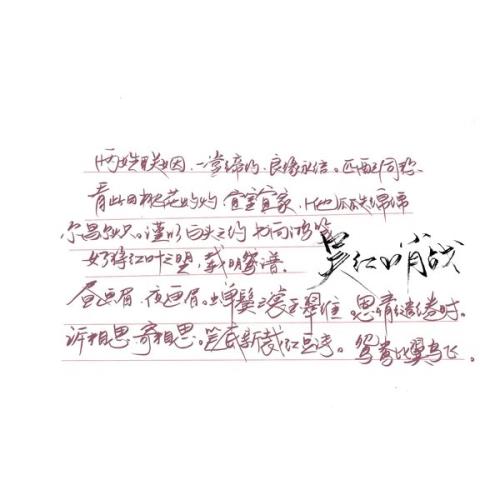 两姓联姻,一堂缔约,良缘永结。匹配同称、
看此日桃花灼灼 宜室宜家,卜他瓜瓞绵绵
尔昌尔炽。谨以白头之约 书向鸿笺
好将红叶之盟 载明鸳谱.
昼画眉,夜画眉。蝉鬓 思情缱绻时。
诉相思 寄相思。新裁红豆诗。鸳鸯比翼飞。